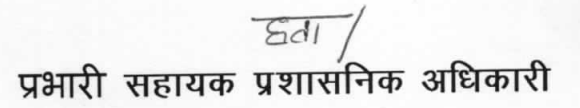 ह0/
प्रभारी सहायक प्रशासनिक अधिकारी